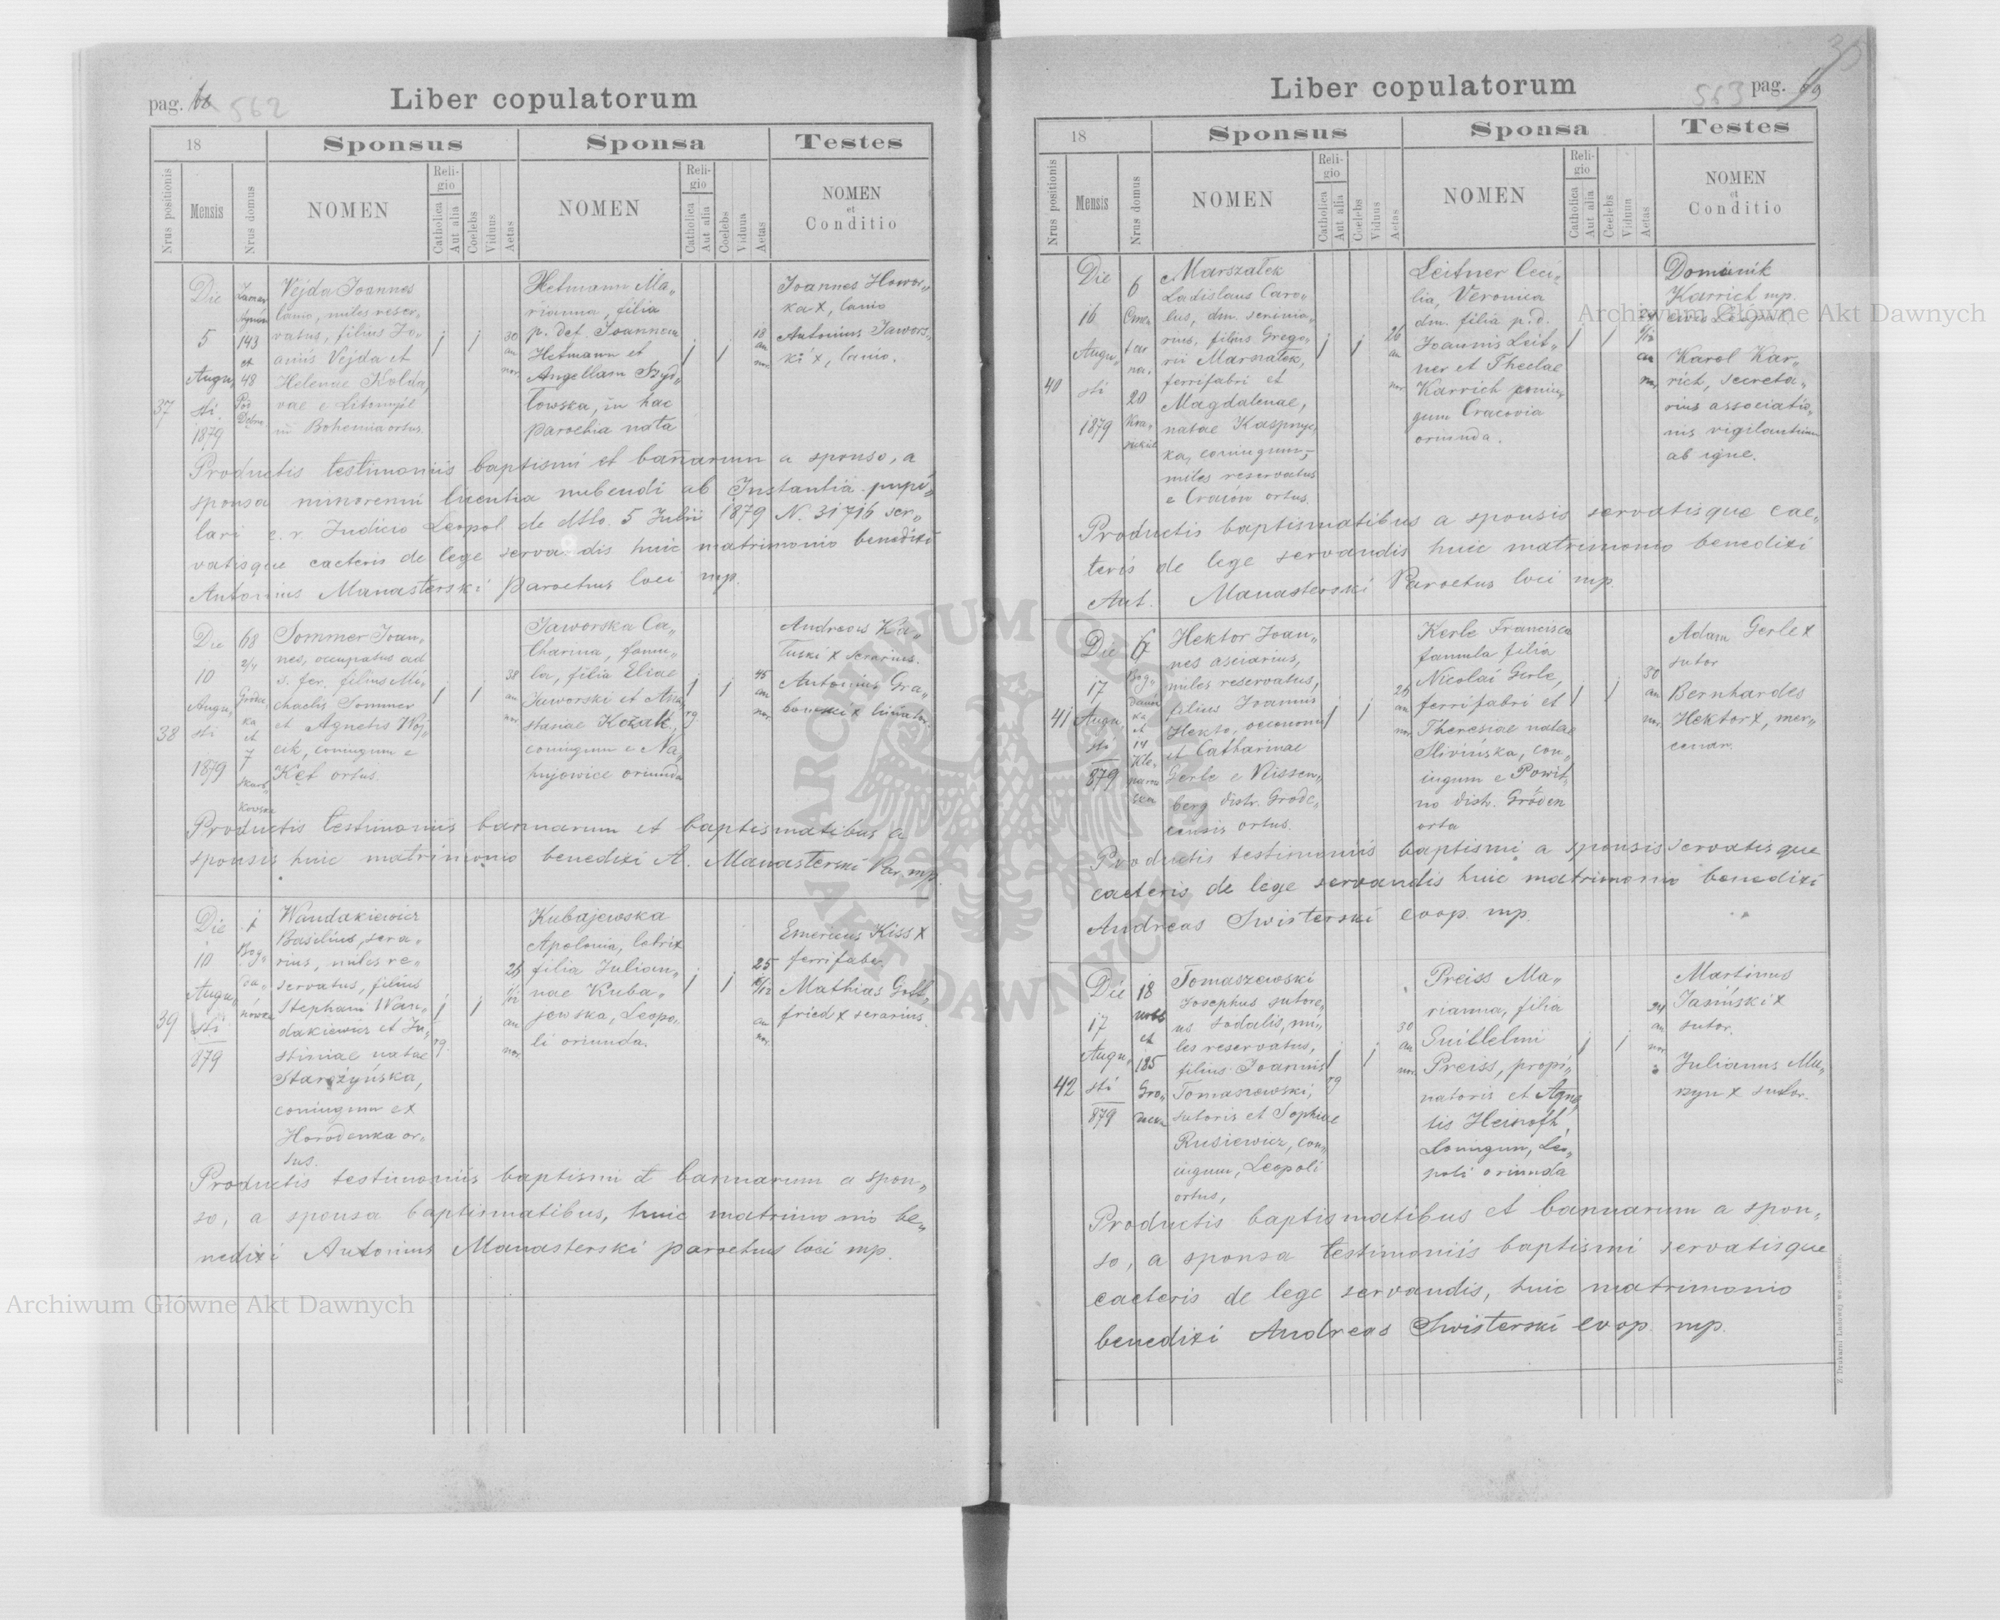 pag. 562
Liber copulatorum
18
Sponsus
Sponsa
Testes
Nrus positionis
Mensis
Nrus domus
NOMEN
Religio
Catholica
Aut alia
Coelebs
Viduus
Aetas
NOMEN
Religio
Catholica
Aut alia
Coelebs
Vidua
Aetas
NOMEN
et
Conditio
37
Die
5
Augu„
sti
1879
143
et
48
Vejda Joannes
lanio, miles reser„
vatus, filius Jo„
annis Vejda et
Helenae Kolda„
vae e Litomyśl
in Bohemia ortus.
30
an
nor.
Hetmann Ma„
rianna, filia
p. def. Joannem
Hetmann et
Angellam Szyd„
łowska, in hac
parochia nata
18
an
nor.
Joannes Howor„
ka x, lanio
Antonius Jawors„
ki x, lanio.
Productis testimoniis baptismi et bannarum a sponso, a
sponsa minorenni licentia nubendi ab Instantia pupi„
lari c. r. Judicio Leopol de dtto. 5 Julii 1879 N. 31716 ser„
vatisque caeteris de lege servandis huic matrimonio benedixi
Antonius Manasterski parochus loci mp.
38
Die
10
Augu„
sti
1879
68
2/4
Gródec„
ka
et
7
Skar„
kowska
Sommer Joan„
nes, occupatus ad
s. fer. filius Mi„
chaelis Sommer
et Agnetis Woj„
cik, coniugum e
Kęt ortus.
38
an
nor.
Jaworska Ca„
tharina, famu„
la, filia Eliae
Jaworski et Ana„
stasiae Kozak,
coniugum e Na„
hujowice oriunda
rg
45
an
nor.
Andreas Ka„
łuski x serarius.
Antonius Gra„
bowski x
Productis testimoniis bannarum et baptismatibus a
sponsis huic matrimonio benedixi A. Manasterski Par. mp.
39
Die
10
Augu„
sti
879
1
Bog„
da„
nówka
Wandakiewicz
Basilius, sera„
rius, miles re„
servatus, filius
Stephani Wan„
dakiewicz et Ju„
stiniae natae
Starzyńska,
coniugum ex
Horodenka or„
tus.
rg.
26
an
nor.
Kubajewska
Apolonia, lotrix
filia Julian„
nae Kuba„
jewska, Leopo„
li oriunda.
25
10/12
an
nor.
Emericus Kiss x
ferrifaber.
Mathias Gott„
fried x serarius.
Productis testimoniis baptismi et bannarum a spon„
so, a sponsa baptismatibus, huic matrimonio be„
nedixi Antonius Manasterski parochus loci mp.
Archiwum Główne Akt Dawnych
ARCHIWUM GŁÓWNE AKT DAWNYCH
35
Liber copulatorum
563 pag. 69
18
Sponsus
Sponsa
Testes
Nrus positionis
Mensis
Nrus domus
NOMEN
Religio
Catholica
Aut alia
Coelebs
Viduus
Aetas
NOMEN
Religio
Catholica
Aut alia
Coelebs
Vidua
Aetas
NOMEN
et
Conditio
40
Die
16
Augu„
sti
1879
6
Cmen
tar
na.
20
Marszałek
Ladislaus Caro„
lus, dm. scrinia„
rius, filius Grego„
rii Marszałek,
ferrifabri et
Magdalenae,
natae Kasprzyc„
ka, coniugum,
miles reservatus
e Cracov ortus.
26
an
nor
Leitner Ceci„
lia, Veronica
dm. filia p. d.
Joannis Leit„
ner et Theclae
Karrich coniu„
gum Cracovia
oriunda.
an
nor.
Dominik
Karrich mp.
civis Leopol,
Karol Kar„
rich, secreta„
rius associatio„
nis vigilantium
ab igne.
Archiwum Główne Akt Dawnych
Productis baptismatibus a sponsis servatisque cae„
teris de lege servandis huic matrimonio benedixi
Ant. Manasterski Parochus loci mp.
41
Die
17
Augu„
sti
879
6
Bog„
danów
ka
et
14
Kle„
parow
ska
Hektor Joan„
nes asciarius,
miles reservatus,
filius Joannis
Hekto, oeconomi
et Catharinae
Gerle e Weissen„
berg distr. Grode„
censis ortus.
26
an
nor
Kerle Francisca
famula filia
Nicolai Gerle,
ferrifabri et
Theresiae natae
Sliwińska, con„
iugum e Powit„
no distr. Gródek
orta
30
an
nor.
Adam Gerle x
sutor
Bernhardes
Hektor x, mer„
cenar.
Productis testimoniis baptismi a sponsis servatisque
caeteris de lege servandis huic matrimonio benedixi
Andreas Swisterski coop. mp.
42
Die
17
Augu„
sti
879
18
urbs
et
185
Gro„
decka
Tomaszewski
Josephus sutore„
us sodalis, mi„
les reservatus,
filius Joannis
Tomaszewski,
sutoris et Sophiae
Rusiewicz, con„
iugum, Leopoli
ortus,
rg
30
an
nor.
Preiss Ma„
rianna, filia
Guillelmi
Preiss, propi„
natoris et Agne„
tis Heinoth,
Coniugum, Leo„
poli oriunda
24
an
nor
Martinus
Jasiński x
sutor.
Julianus Mu„
szyn x sutor.
Productis baptismatibus et bannarum a spon„
so, a sponsa testimoniis baptismi servatisque
caeteris de lege servandis, huic matrimonio
benedixi Andreas Swisterski coop. mp.
Z Drukarni Ludowej we Lwowie.